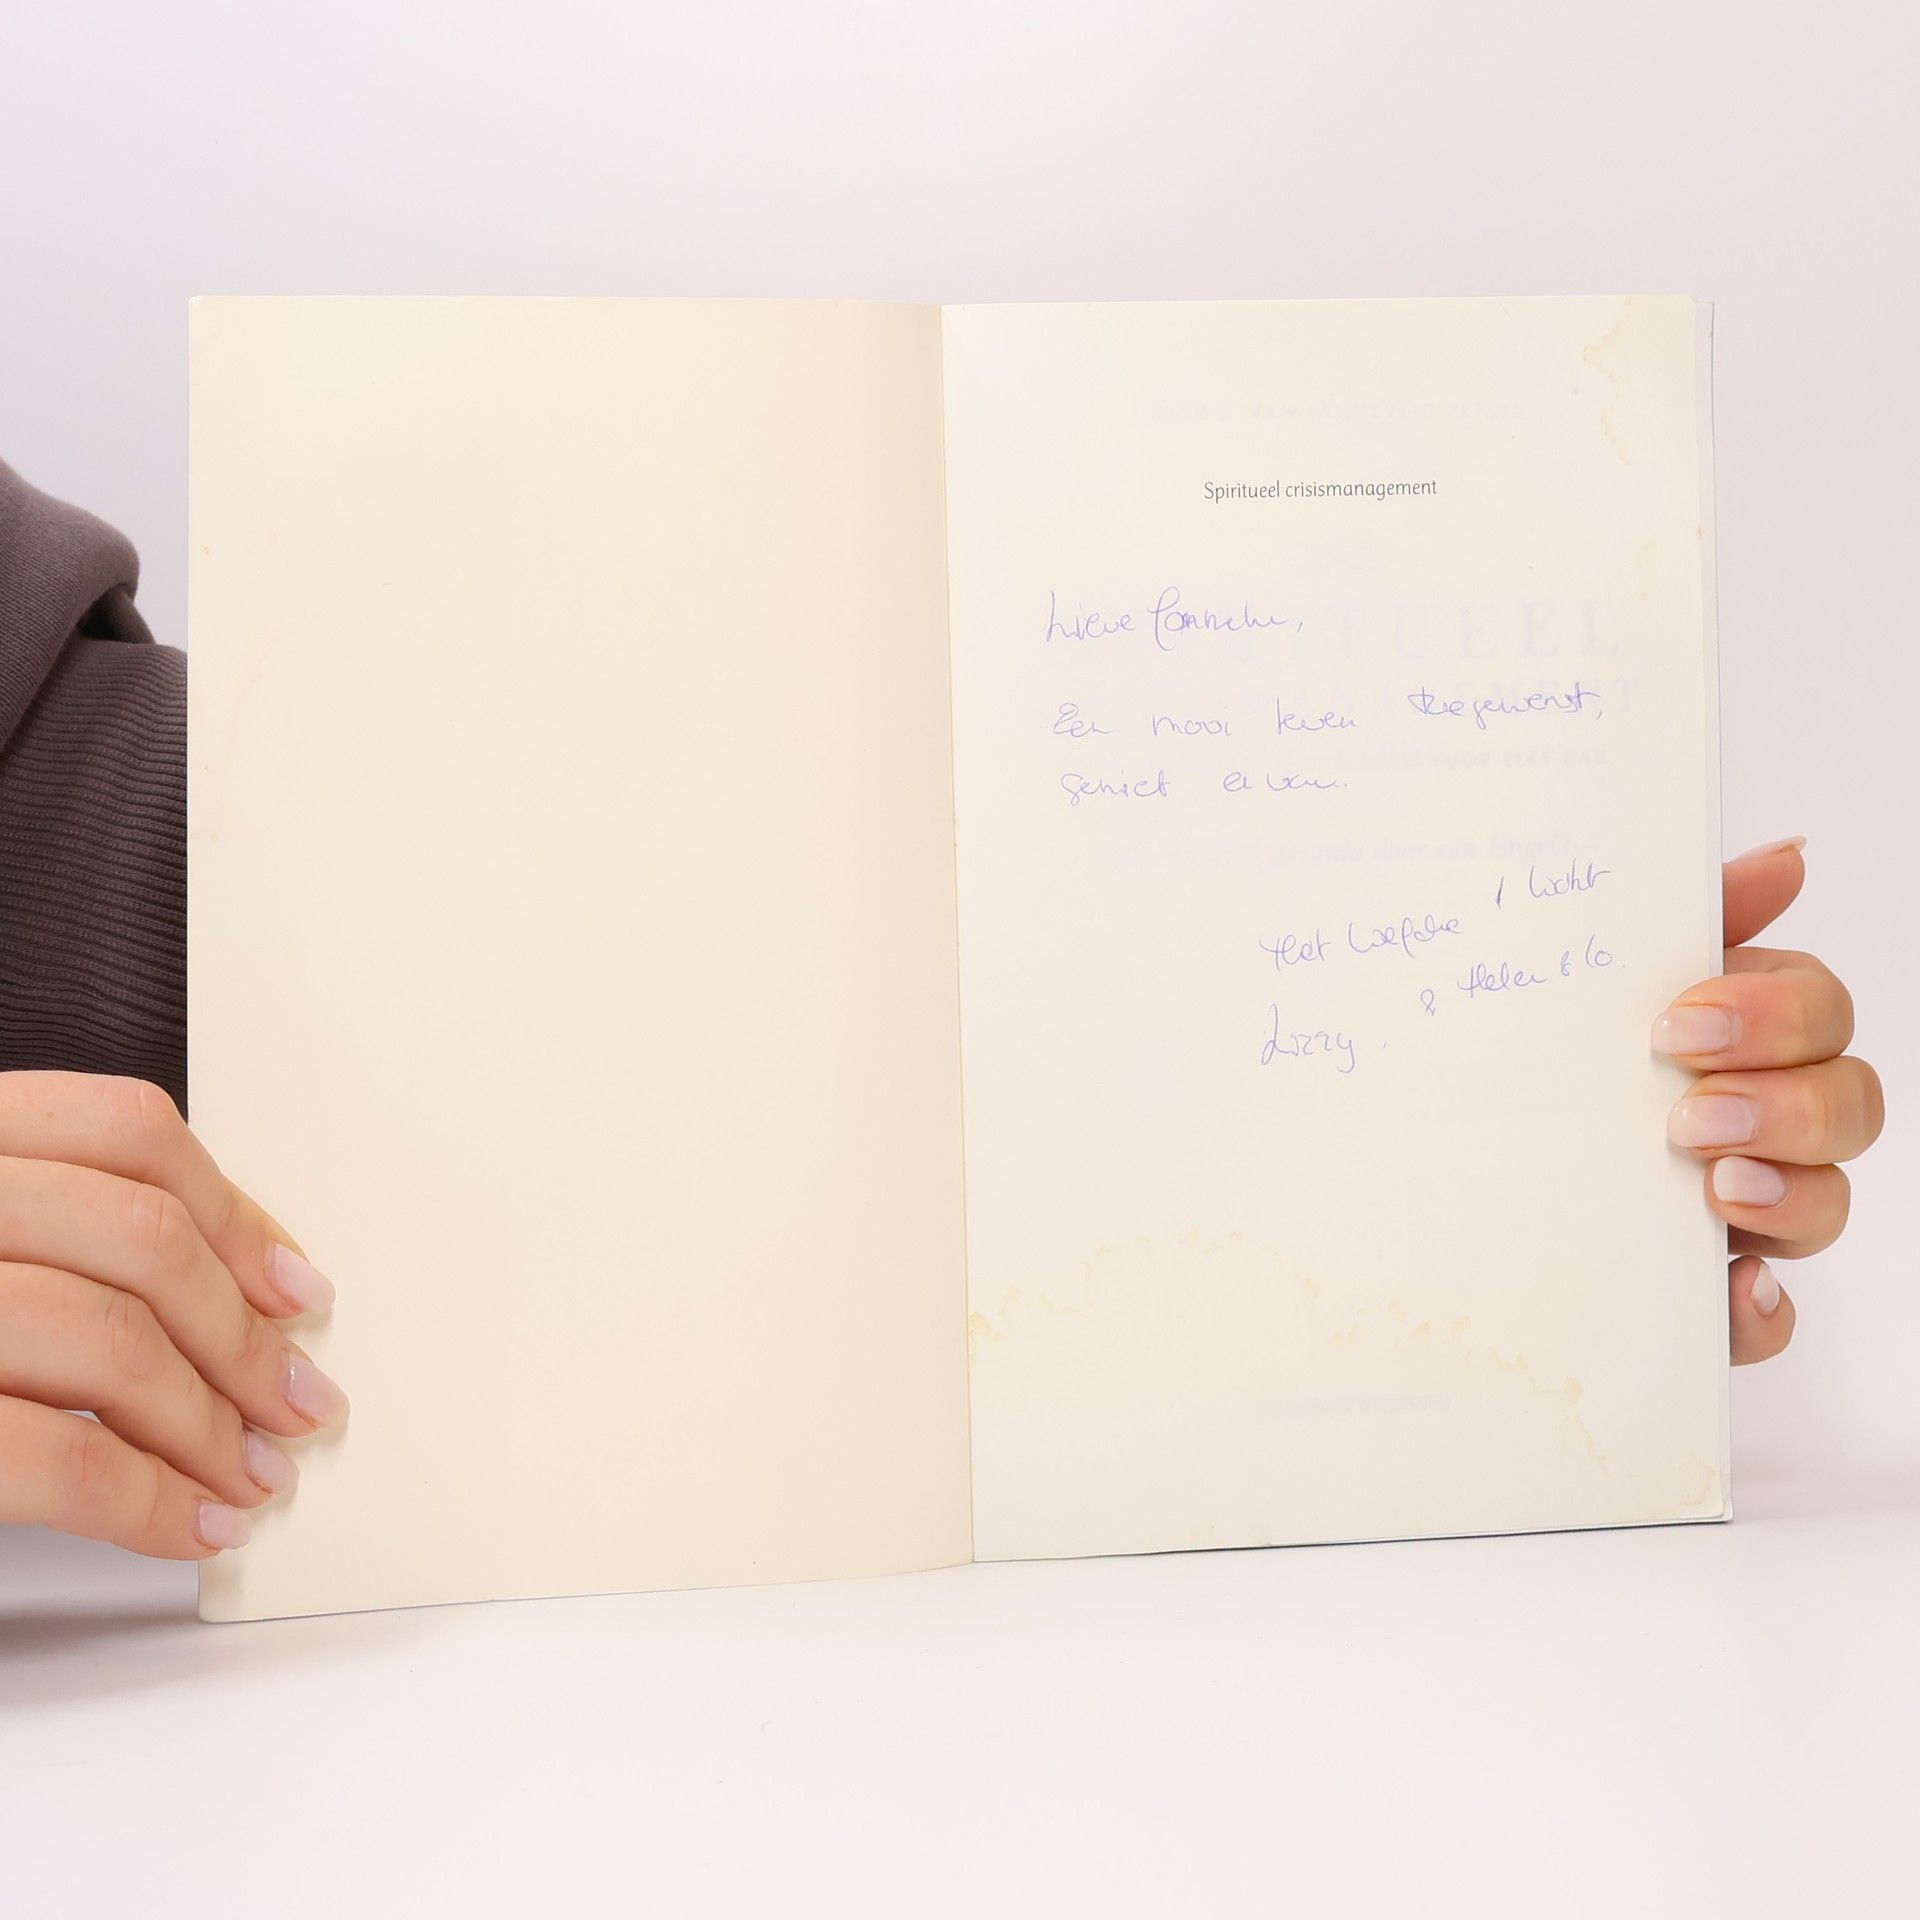 Spiritueel crisismanagement
Lieve Conneke,
Een mooi leven toegewenst,
geniet er van.
Met Liefde & Licht
Lizzy, & Helen & Co.